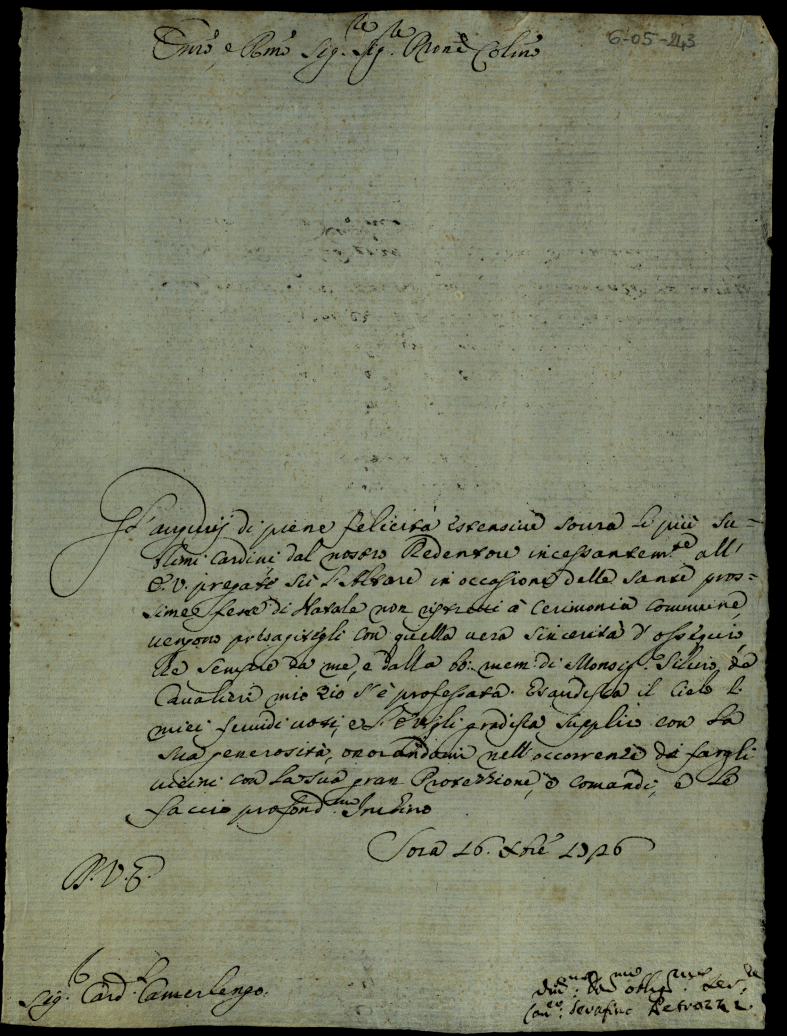 6-05-243
Em̃o, e Rm̃o Sig.re Sig.re Prõne Colm̃o
Gl'augurij di piene felicità estensive sovra li più su=
blimi cardini dal nostro Redentore incessantem.te all'
E.V. pregate su l'Altare in occasione delle sante pros=
sime feste di Natale non ristretti à cerimonia commune,
vengono presagitigli con quella vera sincerità d'ossequio,
che sempre da me, e dalla bo: mem: di Monsig.
Cavalieri mio Zio s'è professata. Esaudisca il Cielo li
miei voti, e l'E.V. gli gradisca supplico con la
sua generosità, onorandomi nell'occorrenze da fargli
con la sua gran Protezzione, e comandi, e le
faccio profond.mo Inchino
Sora 16. Xbre 1726
D.V.E.
Sig.r Card.l Camerlengo
Dev.mo obblig.mo Ser.re
Serafino Petrozzi